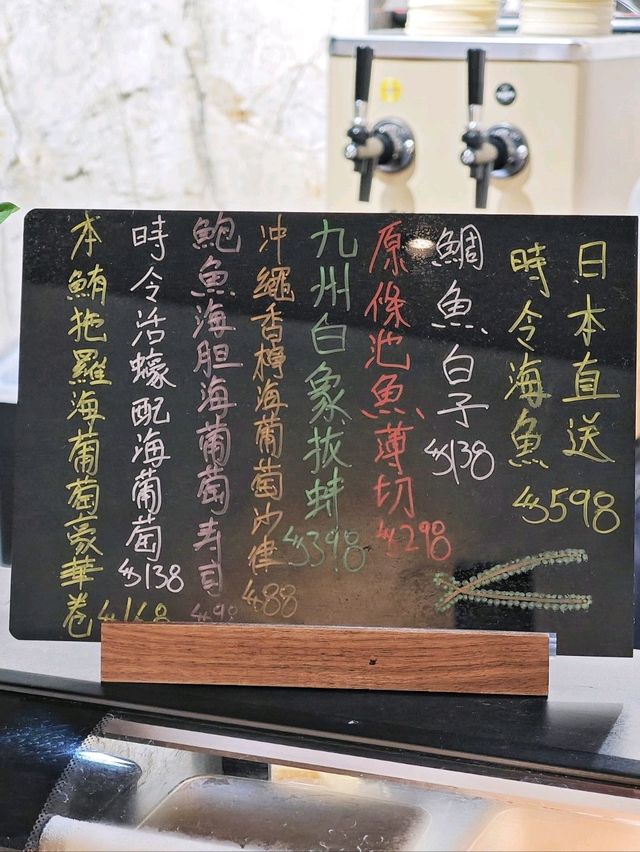 日本直送
時令海魚
$598
鯛魚白子
$138
原條池魚薄切
$298
九州白象拔蚌
$398
沖繩香檸海葡萄沙律
$88
鮑魚海胆海葡萄寿司
$98
時令活蠔配海葡萄
$138
本鮪拖羅海葡萄豪華卷
$168